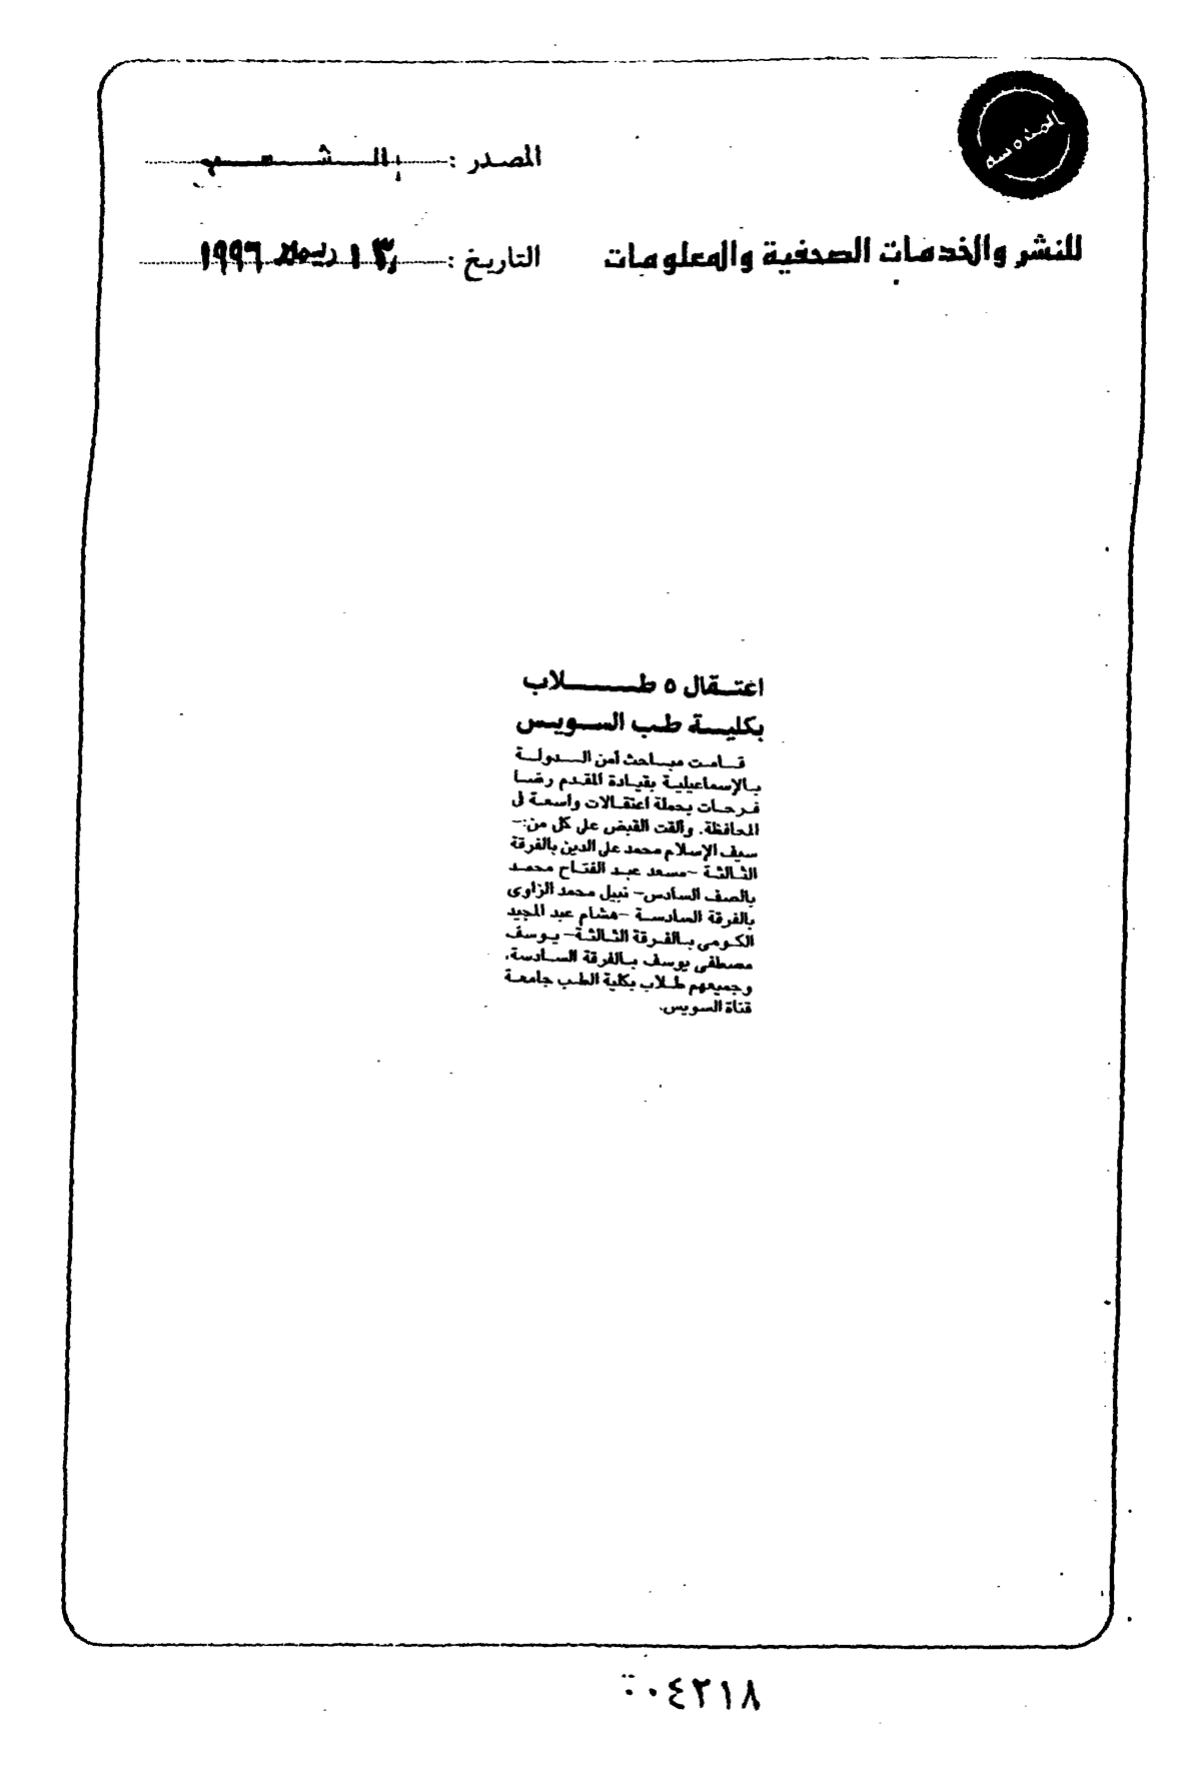 المصدر : الشعب
للنشر والخدمات الصحفية والمعلومات
التاريخ : ١٩٩٦
اعتقال ٥ طلاب
بكلية طب السويس
قامت مباحث أمن الدولة
بالإسماعيلية بقيادة المقدم رضا
فرحات بحملة اعتقالات واسعة فى
المحافظة. وألقت القبض على كل من:-
سيف الإسلام محمد على الدين بالفرقة
الثالثة -مسعد عبد الفتاح محمد
بالصف السادس- نبيل محمد الزاوى
بالفرقة السادسة -هشام عبد المجيد
الكومى بالفرقة الثالثة- يوسف
مصطفى يوسف بالفرقة السادسة،
وجميعهم طلاب بكلية الطب جامعة
قناة السويس.
٠٤٢١٨